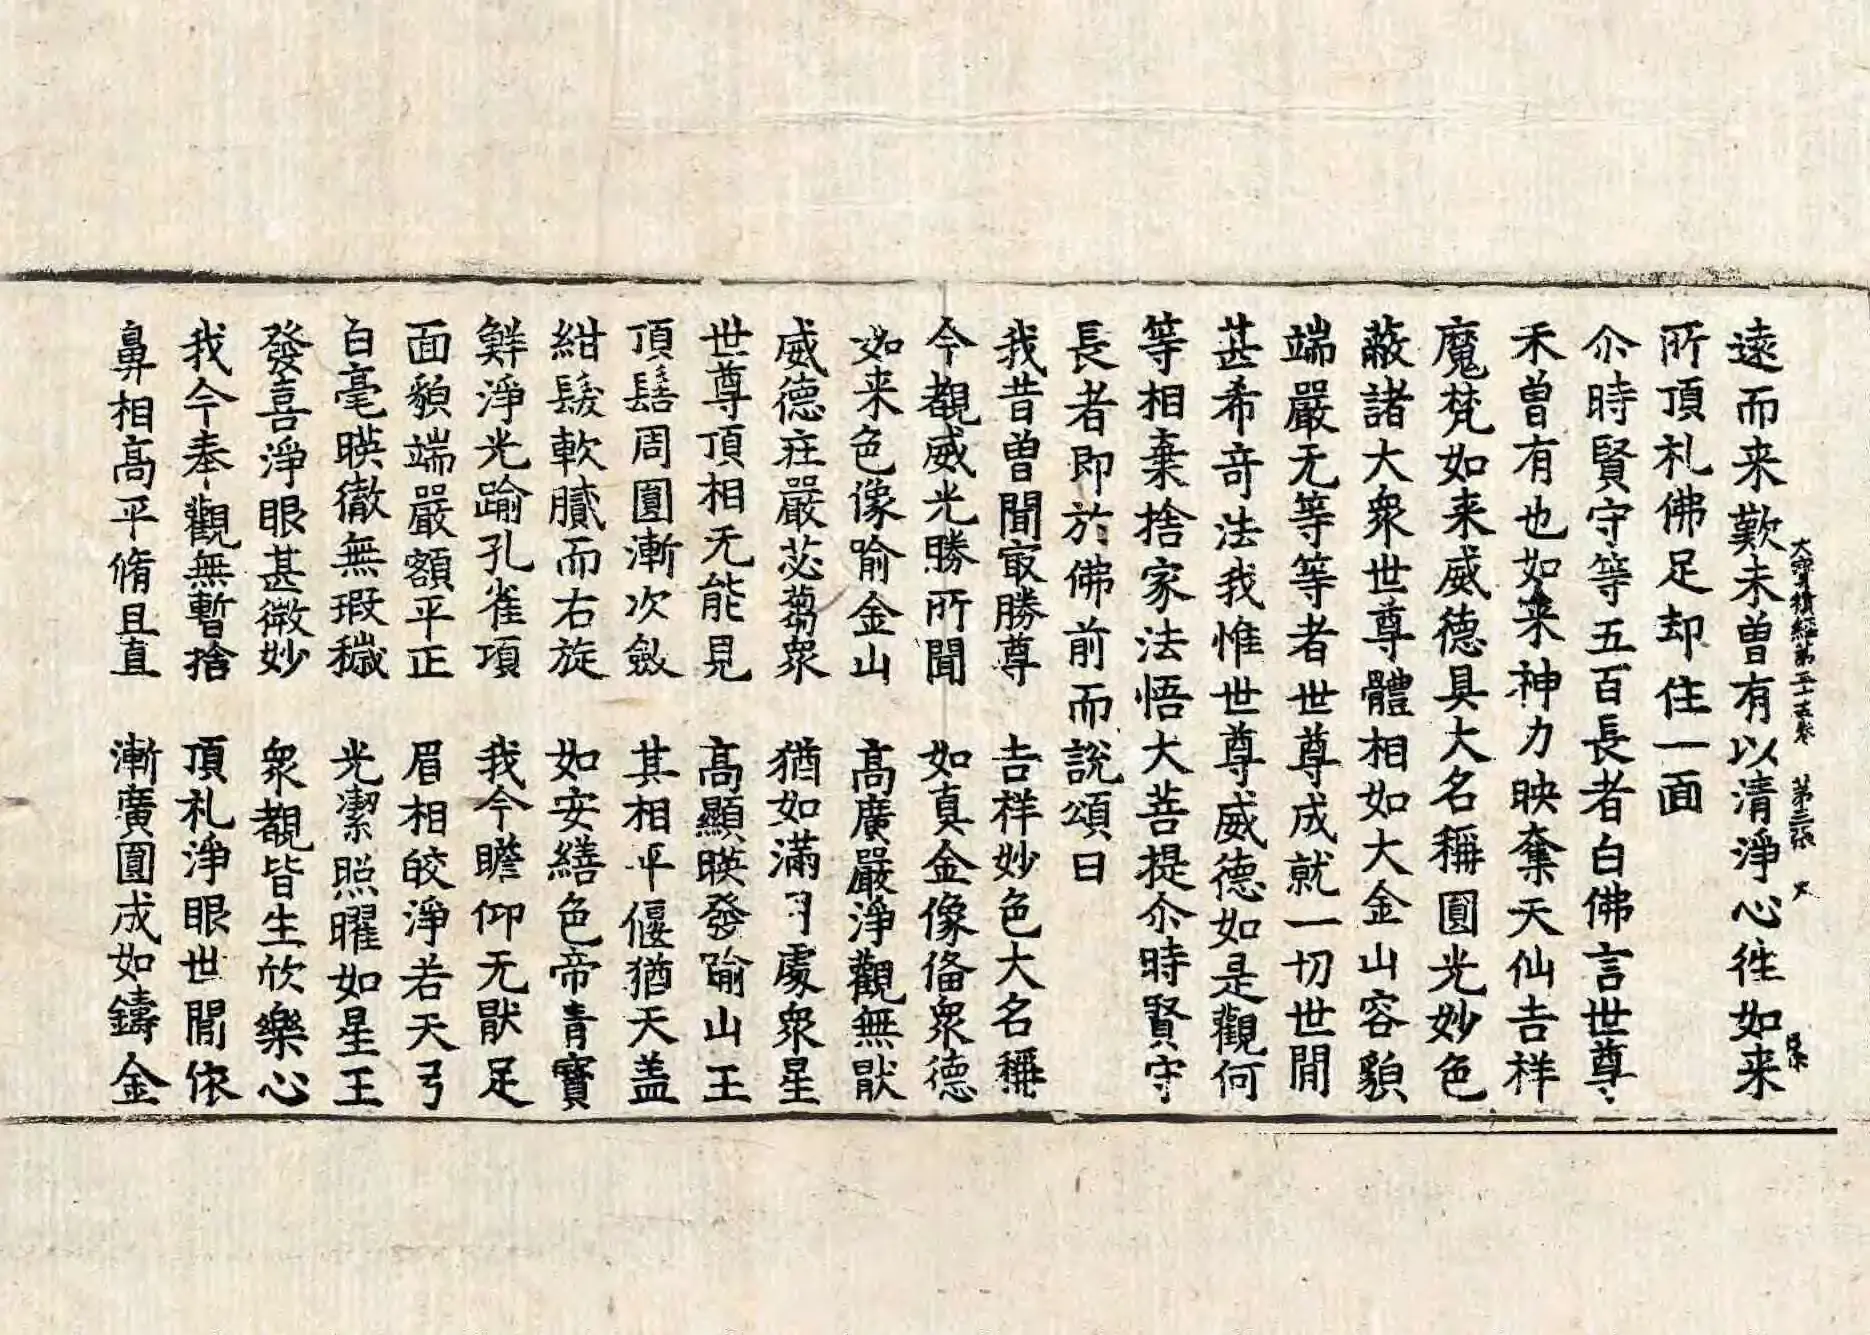 遠而来歎未曾有以清淨心往如来
大寳積經第三十五卷 第三張 火
所頂礼佛足却住一面
尒時賢守等五百長者白佛言世尊
未曾有也如来神力映奪天仙吉祥
魔梵如来威德具大名稱圓光妙色
蔽諸大衆世尊體相如大金山容貌
端嚴无等等者世尊成就一切世間
甚希奇法我惟世尊威德如是觀何
等相棄捨家法悟大菩提尒時賢守
長者即於佛前而說頌曰
我昔曾聞㝡勝尊 吉祥妙色大名稱
今覩威光勝所聞 如真金像俻衆德
如来色像喻金山 髙廣嚴淨觀無猒
威德庄嚴苾蒭衆 猶如滿月處衆星
世尊頂相无能見 髙顯暎發喻山王
頂髻周圓漸次斂 其相平偃猶天盖
紺髮軟膩而右旋 如安繕色帝青寶
鮮淨光踰孔雀項 我今瞻仰无猒足
面貌端嚴額平正 眉相皎淨若天弓
白毫暎徹無瑕穢 光潔照曜如星王
發喜淨眼甚微妙 衆覩皆生欣樂心
我今奉觀無暫捨 頂礼淨眼世間依
鼻相髙平脩且直 漸廣圓成如鑄金